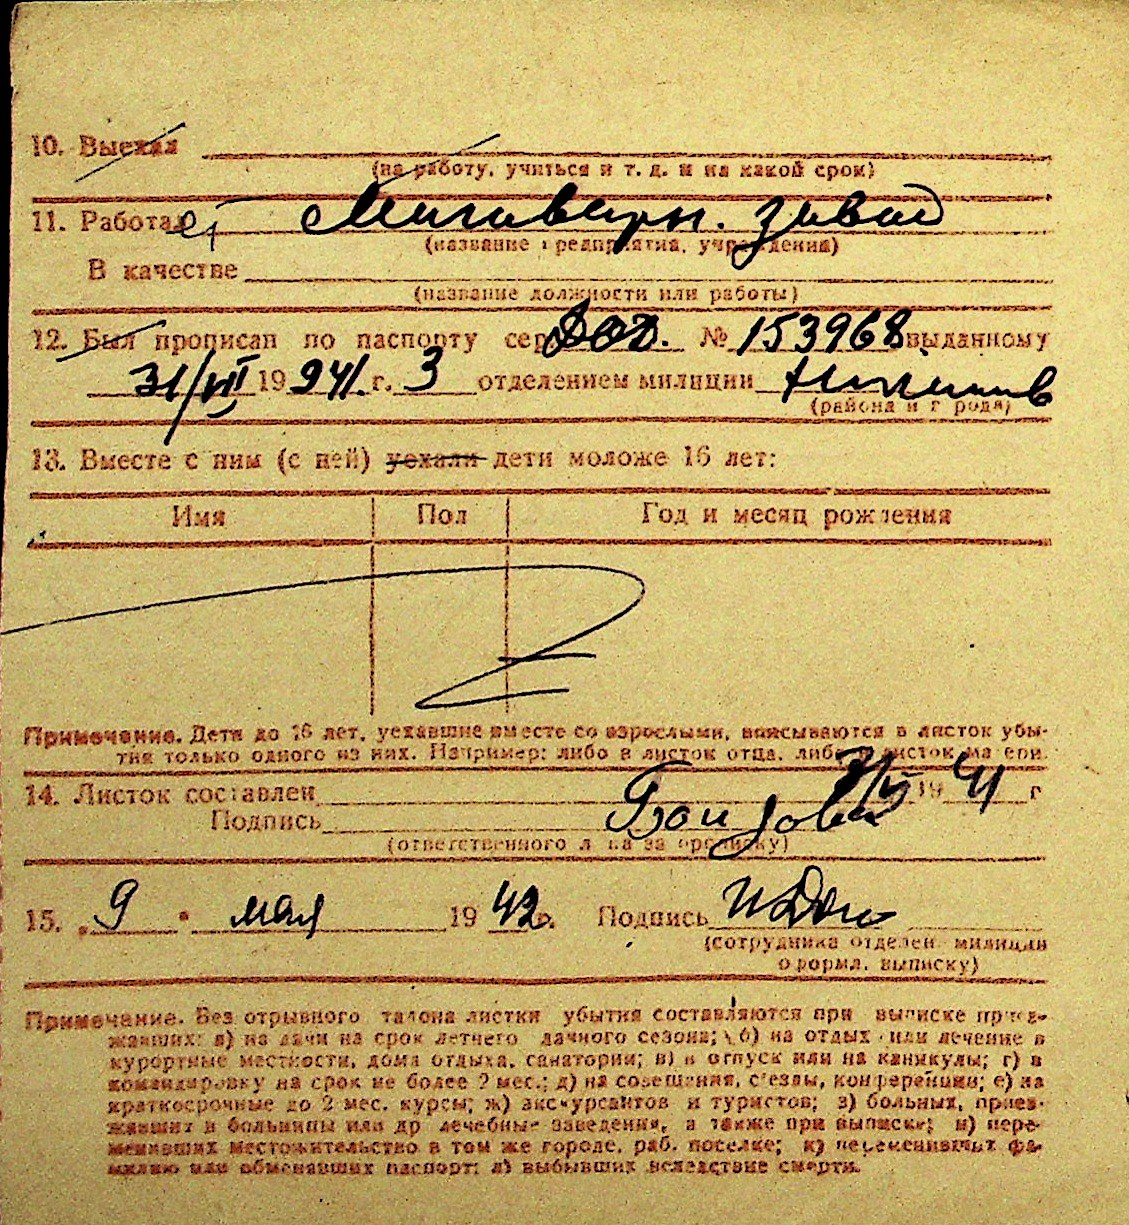 10. Выехал
(на работу, учиться и т. д. и на какой срок)
11. Работает завод
(название предприятия, учреждения)
В качестве
(название должности или работы)
12. Был прописан по паспорту сер № 153968 выданному
31/VII 1941 г. 3 отделением милиции
(района и города)
13. Вместе с ним (с ней) уехали дети моложе 16 лет:
Имя Пол Год и месяц рождения
Примечание. Дети до 16 лет, уехавшие вместе со взрослыми, вписываются в листок убы-
тия только одного из них. Например: либо в листок отца, либо в листок матери.
14. Листок составлен 19 г
Подпись
(ответственного лица за прописку)
15. 9 мая 1942 г. Подпись
(сотрудника отделен. милиции
оформл. выписку)
Примечание. Без отрывного талона листки убытия составляются при выписке приез-
жавших: а) на дачи на срок летнего дачного сезона; б) на отдых или лечение в
курортные местности, дома отдыха, санатории; в) в отпуск или на каникулы; г) в
командировку на срок не более 2 мес.; д) на совещания, с'езды, конференции; е) на
краткосрочные до 2 мес. курсы; ж) экскурсантов и туристов; з) больных, приез-
жавших в больницы или др лечебные заведения, а также при выписке; и) пере-
менивших местожительство в том же городе, раб. поселке; к) переменивших фа-
милию или обменявших паспорт; л) выбывших вследствие смерти.